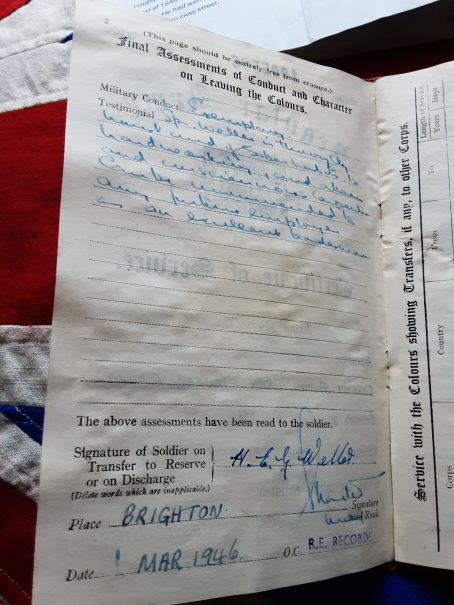 troub
st of 1946
He had wan
in civvy street.
2
(This page should be entirely free from erasure.)
Final Assessments of Conduct and Character
on Leaving the Colours.
Military Conduct Exemplary.
Testimonial Spr. Weller is thoroughly
honest and of sober habits. A
hardworking, and
and conscientious
Can be recommended to
any future employer
as an excellent tradesman
The above assessments have been read to the soldier.
Signature of Soldier on
Transfer to Reserve
or on Discharge
H. C. G. Weller.
(Delete words which are inapplicable.)
Signature
and Rank
Place BRIGHTON.
Date MAR 1946.
O.C. R.E. RECORDS
Service with the Colours showing Transfers, if any, to other Corps.
Corps
Country
From
To
Length of Service
Years
Days